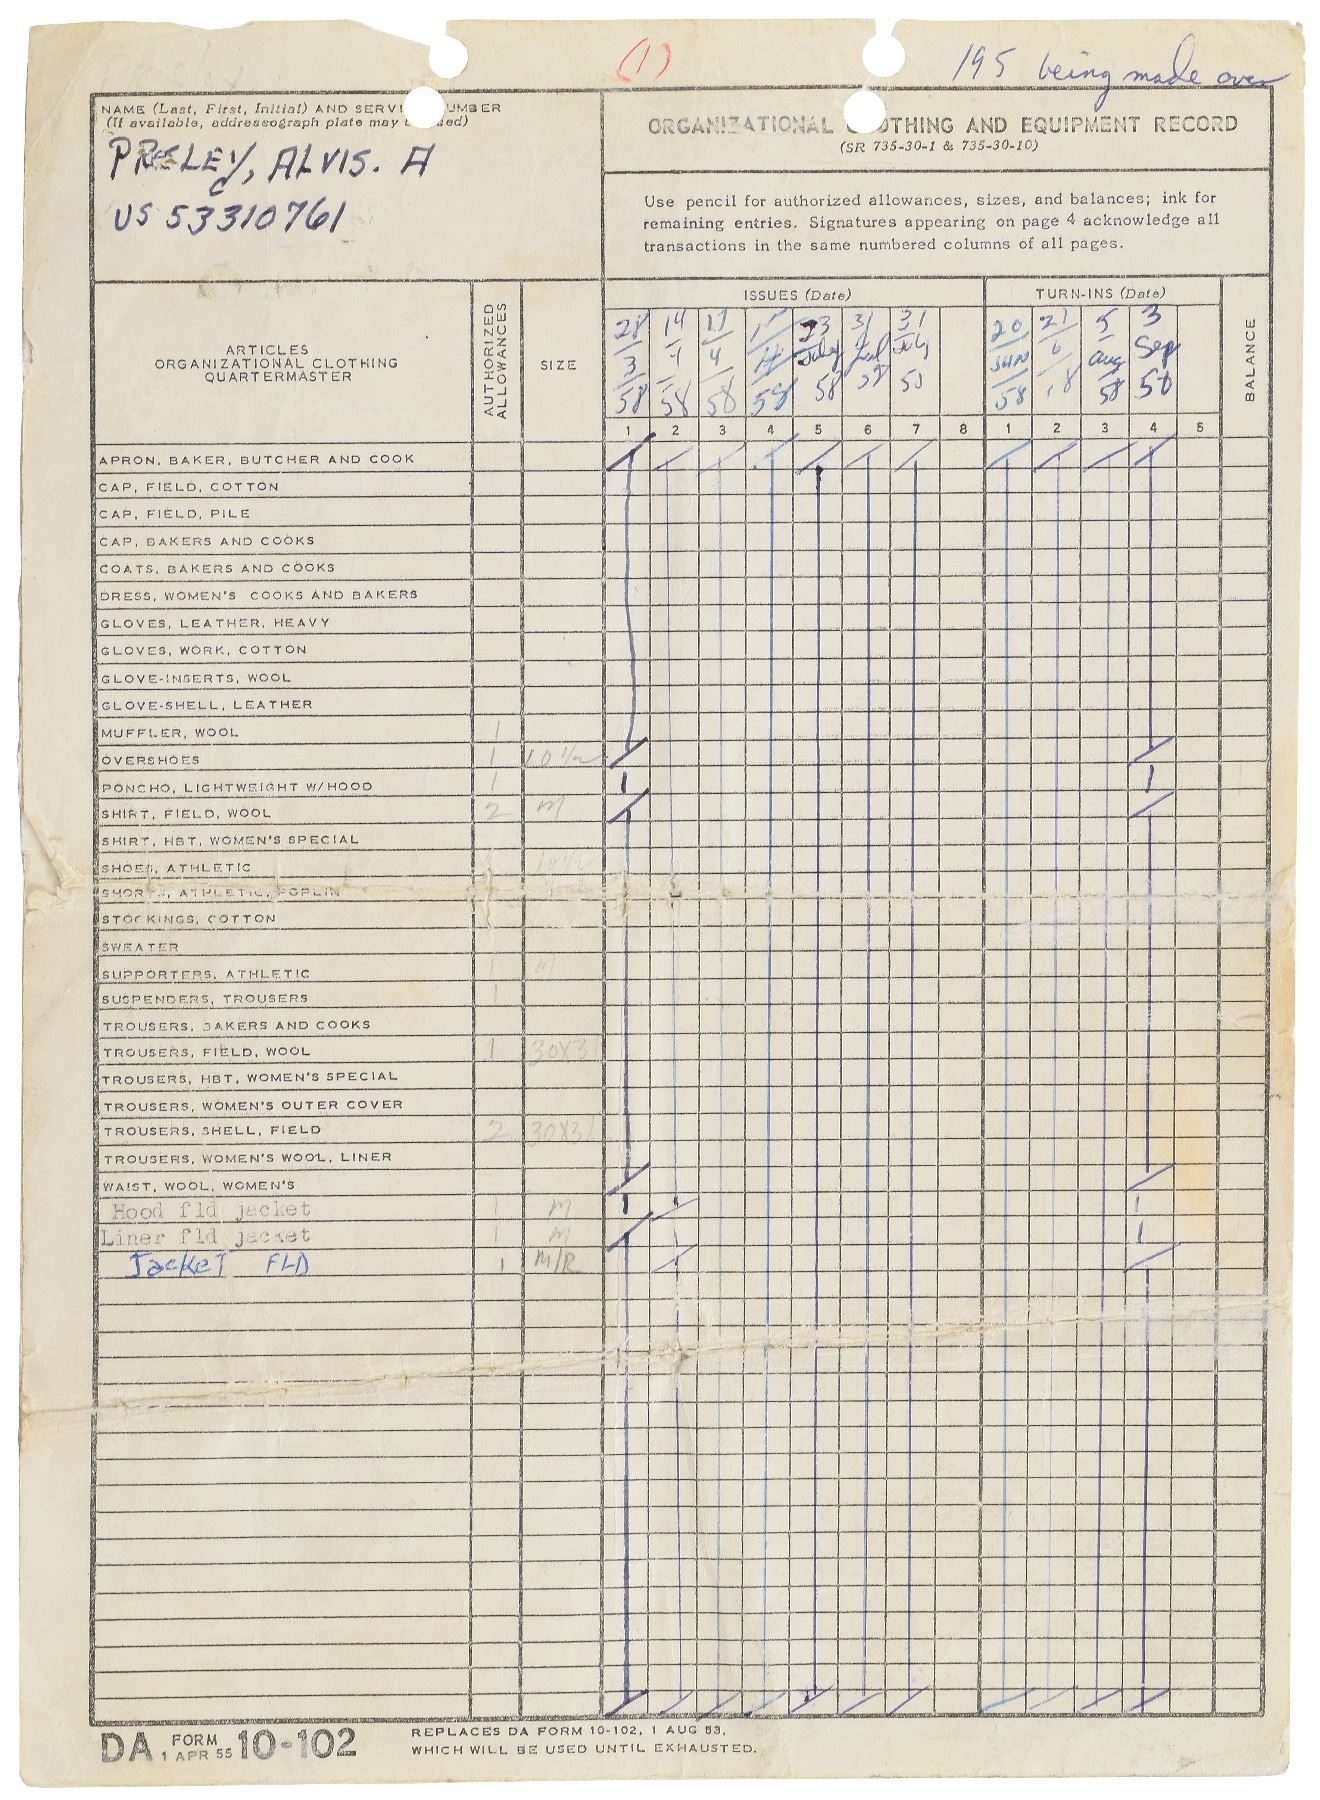 (1)
195 being made over
NAME (Last, First, Initial) AND SERVI UMBER
(If available, addressograph plate may sed)
PRESLEY, ALVIS. A
US 53310761
ORGANIZATIONAL OTHING AND EQUIPMENT RECORD
(SR 735-30-1 & 735-30-10)
Use pencil for authorized allowances, sizes, and balances; ink for
remaining entries. Signatures appearing on page 4 acknowledge all
transactions in the same numbered columns of all pages.
ARTICLES
ORGANIZATIONAL CLOTHING
QUARTERMASTER
AUTHORIZED
ALLOWANCES
SIZE
ISSUES (Date)
TURN-INS (Date)
BALANCE
28 14 17 23 31 31 20 21 5 3
3 4 4 July July JUN 6 Aug Sep
58 58 58 58 58 58 58 58
1 2 3 4 5 6 7 8 1 2 3 4 5
APRON, BAKER, BUTCHER AND COOK
CAP, FIELD, COTTON
CAP, FIELD, PILE
CAP, BAKERS AND COOKS
COATS, BAKERS AND COOKS
DRESS, WOMEN'S COOKS AND BAKERS
GLOVES, LEATHER, HEAVY
GLOVES, WORK, COTTON
GLOVE-INSERTS, WOOL
GLOVE-SHELL, LEATHER
MUFFLER, WOOL 1
OVERSHOES 1 10 1/2
PONCHO, LIGHTWEIGHT W/HOOD 1 1 1
SHIRT, FIELD, WOOL 2 M
SHIRT, HBT, WOMEN'S SPECIAL
SHOES, ATHLETIC 10 1/2
SHORTS, ATHLETIC, POPLIN
STOCKINGS, COTTON
SWEATER
SUPPORTERS, ATHLETIC 1 M
SUSPENDERS, TROUSERS 1
TROUSERS, BAKERS AND COOKS
TROUSERS, FIELD, WOOL 1 30X31
TROUSERS, HBT, WOMEN'S SPECIAL
TROUSERS, WOMEN'S OUTER COVER
TROUSERS, SHELL, FIELD 2 30X31
TROUSERS, WOMEN'S WOOL, LINER
WAIST, WOOL, WOMEN'S
Hood fld jacket 1 M 1 1
Liner fld jacket 1 M 1
Jacket FLD 1 M/R
DA FORM 10-102
1 APR 55
REPLACES DA FORM 10-102, 1 AUG 53,
WHICH WILL BE USED UNTIL EXHAUSTED.